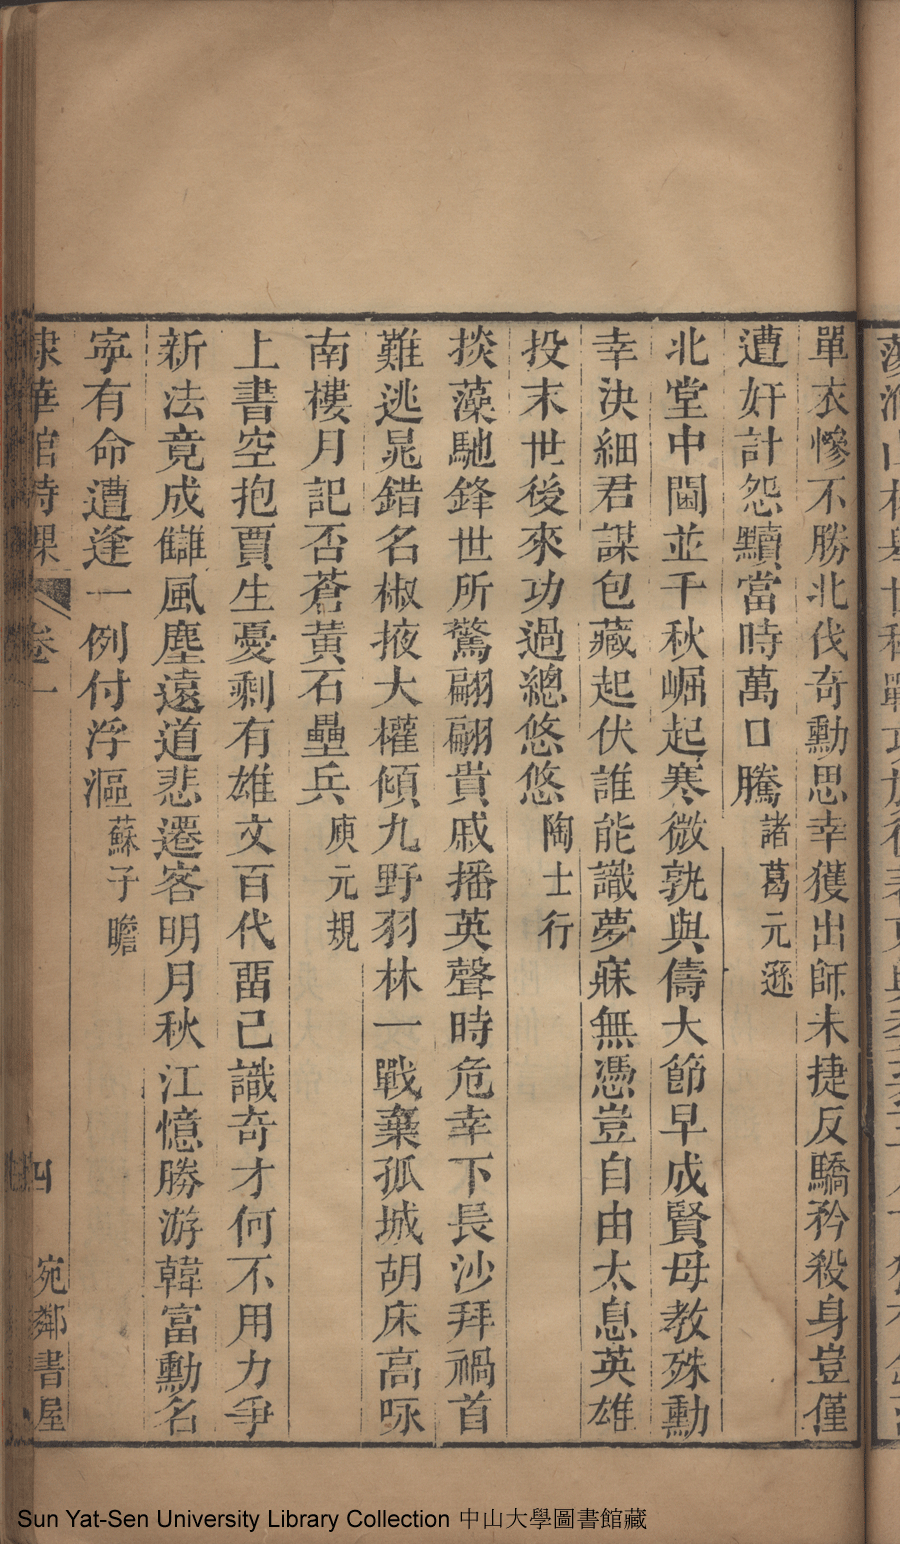 單衣慘不勝北伐奇勳思幸獲出師未捷反驕矜殺身豈僅
遭奸計怨黷當時萬口騰諸葛元遜
北堂中閫並千秋崛起寒微孰與儔大節早成賢母教殊勳
幸決細君謀包藏起伏誰能識夢寐無憑豈自由太息英雄
投末世後來功過總悠悠陶士行
掞藻馳鋒世所驚翩翩貴戚播英聲時危幸下長沙拜禍首
難逃晁錯名椒掖大權傾九野羽林一戰棄孤城胡床高咏
南樓月記否蒼黃石壘兵庾元規
上書空抱賈生憂剩有雄文百代畱已識奇才何不用力爭
新法竟成讎風塵遠道悲遷客明月秋江憶勝游韓富勳名
寧有命遭逢一例付浮漚蘇子瞻
棣華館詩課 卷一 四 宛鄰書屋
Sun Yat-Sen University Library Collection 中山大學圖書館藏